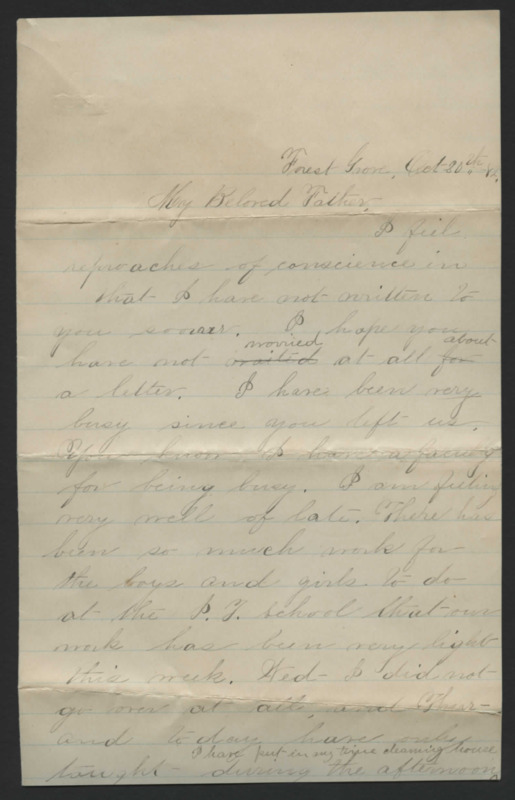 Forest Grove, Oct 20th '82.
My Beloved Father,
I feel
reproaches of conscience in
that I have not written to
you sooner. I hope you
worried about
have not waited at all for
a letter. I have been very
busy since you left us.
You know I have a faculty
for being busy. I am feeling
very well of late. There has
been so much work for
the boys and girls to do
at the I. T. School that our
work has been very light
this week. Wed- I did not
go over at all, and Thur-
and to day have only
I have put in my time cleaning house
taught during the afternoon